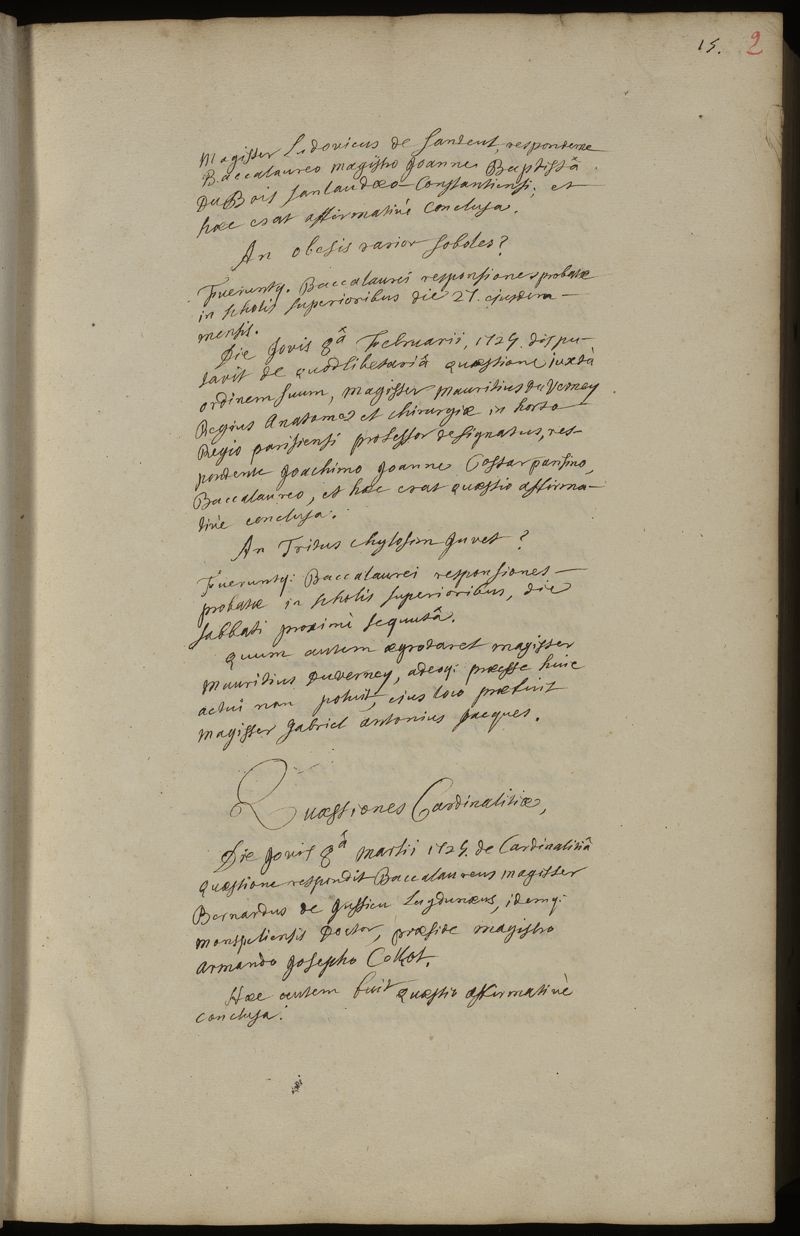 15. 2
Magister Ludovicus de Santeul, respondente
Baccalaureo magistro Joanne Baptistâ
DuBois Sanlaudæo-Constantiensi, et
hæc erat affirmativè conclusa.
An obesis rarior soboles?
Fueruntq. Baccalaurei responsiones probatæ
in scholis superioribus die 27. ejusdem
mensis.
Die Jovis 8â Februarii, 1725. dispu-
tavit de quodlibetariâ quæstione juxtà
ordinem suum, Magister Mauritius du Verney
Regius Anatomes et chirurgiæ in horto
Regio parisiensi professor designatus, res-
pondente Joachimo Joanne Cossar parisino,
Baccalaureo, et hæc erat quæstio affirma-
tivè conclusa.
An Tritus chylosim Juvet?
Fueruntq: Baccalaurei responsiones
probatæ in scholis superioribus, die
sabbati proximè sequutâ.
Quum autem ægrotaret magister
Mauritius Duverney, adeoq: præesse huic
actui non potuit, ejus loco præfuit
Magister Gabriel Antonius Jacques.
Quæstiones Cardinalitiæ,
Die Jovis 8â Martii 1725. de Cardinalitiâ
quæstione respondit Baccalaureus magister
Bernardus de Jussieu Lugdunæus, idemq:
monspeliensis Doctor, præside magistro
Armando Josepho Collot.
Hæc autem fuit quæstio affirmativè
conclusa.